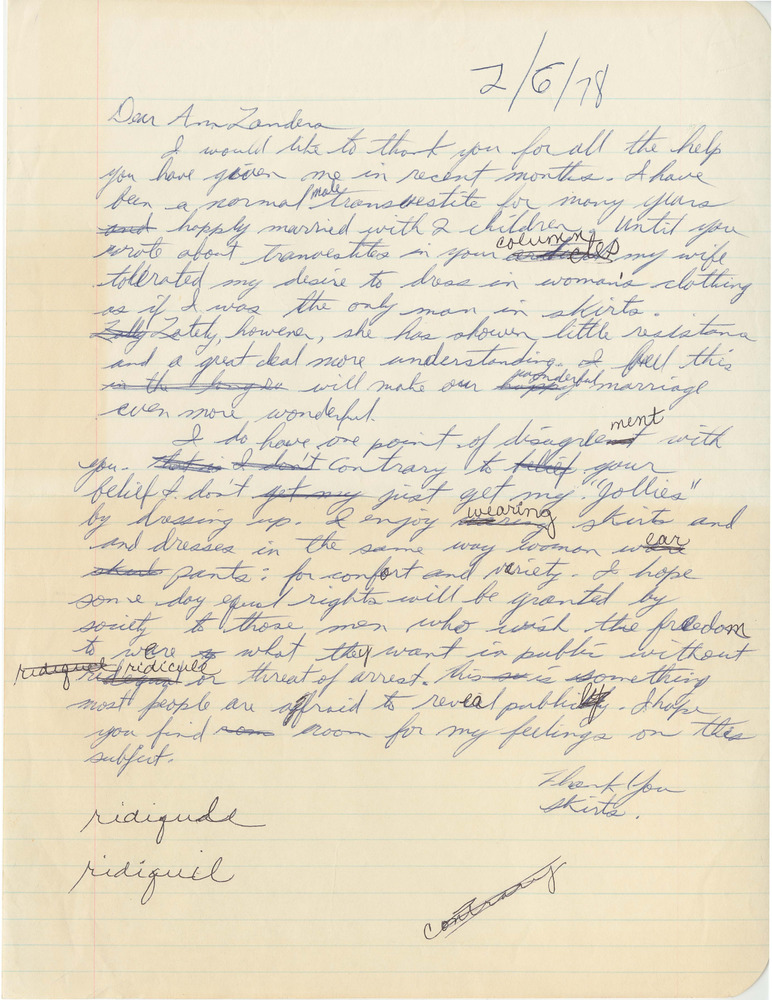 2/6/78
Dear Ann Landers
I would like to thank you for all the help
you have given me in recent months. I have
been a normal male transvestite for many years
and happly married with 2 children. Until you
wrote about tranvestites in your column my wife
tollerated my desire to dress in woman's clothing
as if I was the only man in skirts.
Lately, however, she has shown little resistance
and a great deal more understanding. I feel this
in the long run will make our happy wonderful marriage
even more wonderful.
I do have one point of disagreement with
you. That is I don't Contrary to belief your
belief I don't get my just get my "Jollies"
by dressing up. I enjoy wearing skirts and
and dresses in the same way woman wear
pants: for comfort and variety. I hope
some day equal rights will be granted by
society to those men who wish the freedom
to ware what they want in public without
ridiquel ridicule or threat of arrest. This is something
most people are affraid to reveal publicly. I hope
you find room for my feelings on this
subject.
Thank You
Skirts.
ridiqude
ridiquil
contrary